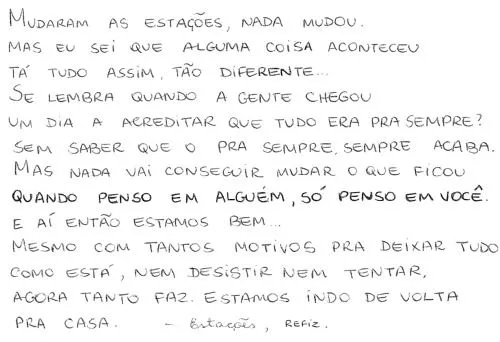 MUDARAM AS ESTAÇÕES, NADA MUDOU.
MAS EU SEI QUE ALGUMA COISA ACONTECEU
TÁ TUDO ASSIM, TÃO DIFERENTE...
SE LEMBRA QUANDO A GENTE CHEGOU
UM DIA A ACREDITAR QUE TUDO ERA PRA SEMPRE?
SEM SABER QUE O PRA SEMPRE, SEMPRE ACABA.
MAS NADA VAI CONSEGUIR MUDAR O QUE FICOU
QUANDO PENSO EM ALGUÉM, SÓ PENSO EM VOCÊ.
E AÍ ENTÃO ESTAMOS BEM...
MESMO COM TANTOS MOTIVOS PRA DEIXAR TUDO
COMO ESTÁ, NEM DESISTIR NEM TENTAR,
AGORA TANTO FAZ. ESTAMOS INDO DE VOLTA
PRA CASA. - Estações, REFIZ.